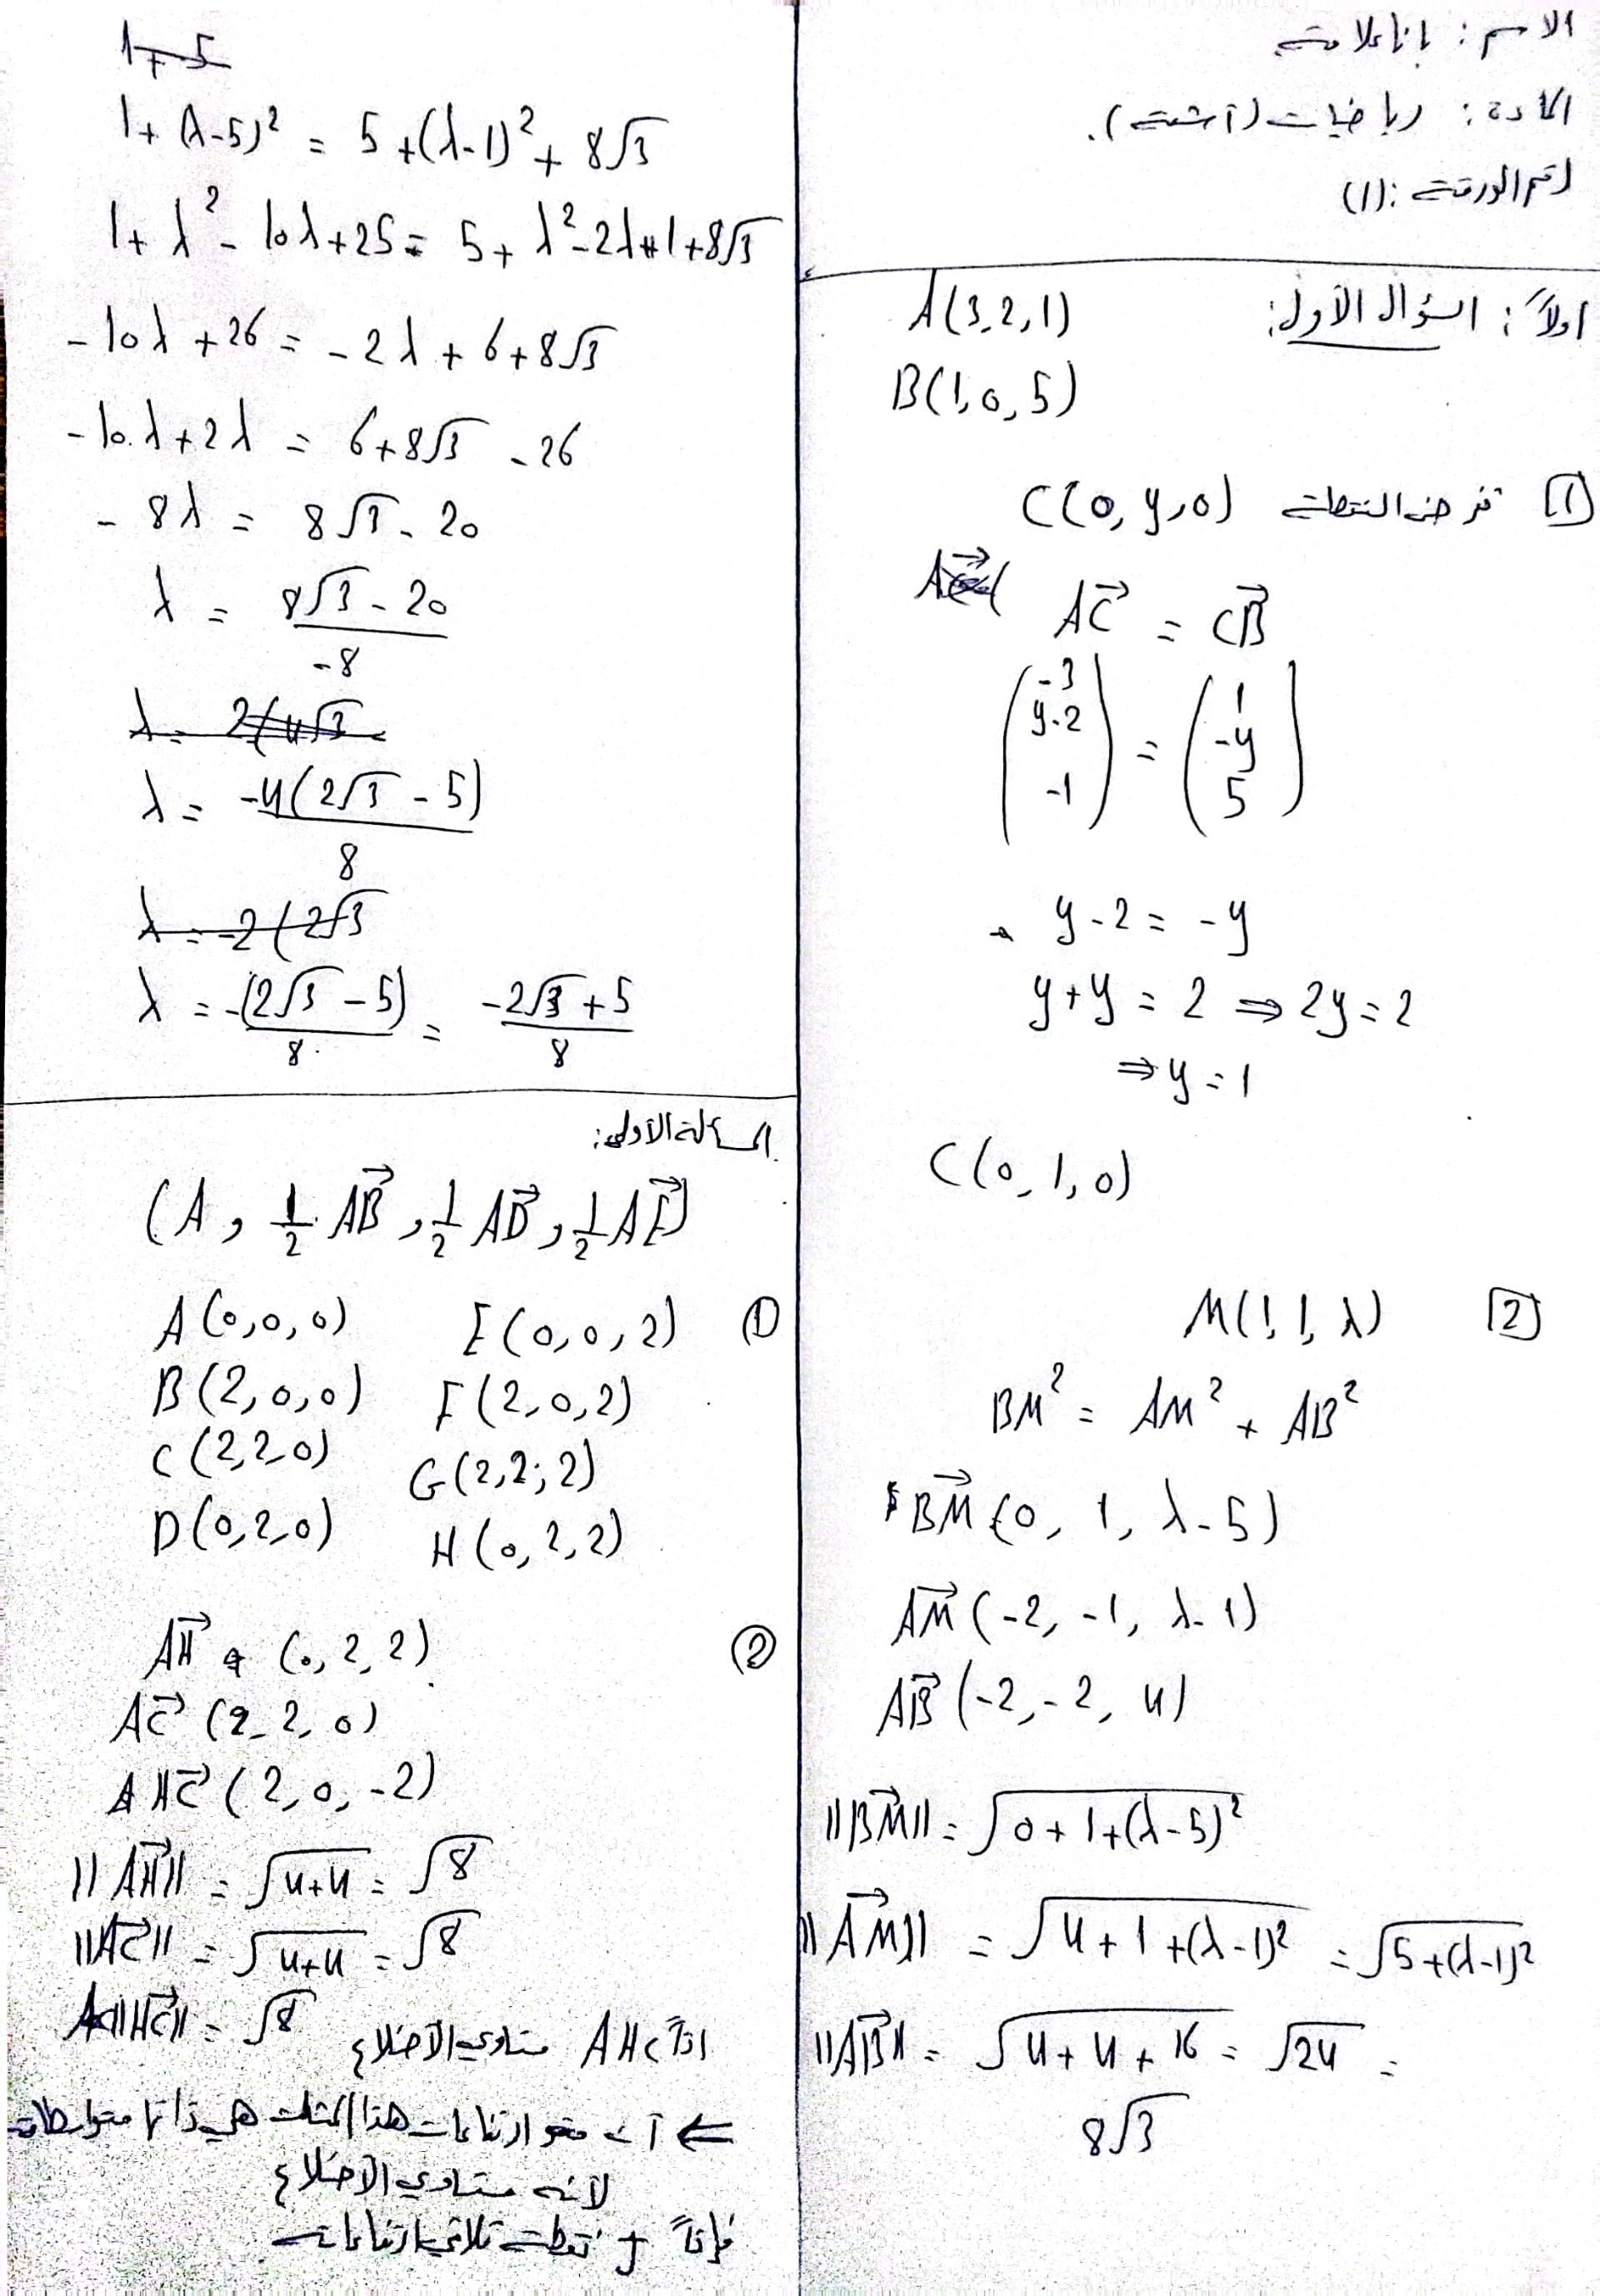 الاسم : بانا علامة
المادة : رياضيات (أشعة).
رقم الورقة : (1)
أولاً : السؤال الأول:
A(3,2,1)
B(1,0,5)
1 نفرض النقطة C(0,y,0)
AC→ = CB→
(-3, y-2, -1) = (1, -y, 5)
y-2 = -y
y+y = 2 ⇒ 2y=2
⇒ y=1
C(0,1,0)
2 M(1,1,λ)
BM² = AM² + AB²
BM→ (0, 1, λ-5)
AM→ (-2, -1, λ-1)
AB→ (-2, -2, 4)
||BM→|| = √(0+1+(λ-5)²)
||AM→|| = √(4+1+(λ-1)²) = √(5+(λ-1)²)
||AB→|| = √(4+4+16) = √24 =
8√3
1+(λ-5)² = 5+(λ-1)²+8√3
1+λ²-10λ+25 = 5+λ²-2λ+1+8√3
-10λ+26 = -2λ+6+8√3
-10λ+2λ = 6+8√3-26
-8λ = 8√3-20
λ = 8√3-20 / -8
λ = -4(2√3-5) / 8
λ = -(2√3-5) / 8 = -2√3+5 / 8
المسألة الأولى:
(A, 1/2 AB→, 1/2 AD→, 1/2 AE→)
① A(0,0,0) E(0,0,2)
B(2,0,0) F(2,0,2)
C(2,2,0) G(2,2,2)
D(0,2,0) H(0,2,2)
② AH→ (0,2,2)
AC→ (2,2,0)
HC→ (2,0,-2)
||AH→|| = √(4+4) = √8
||AC→|| = √(4+4) = √8
||HC→|| = √8
إذاً AHC متساوي الأضلاع
⇐ ارتفاعات هذا المثلث هي ذاتها متوسطاته
لأنه متساوي الأضلاع
فإذاً J نقطة تلاقي ارتفاعات